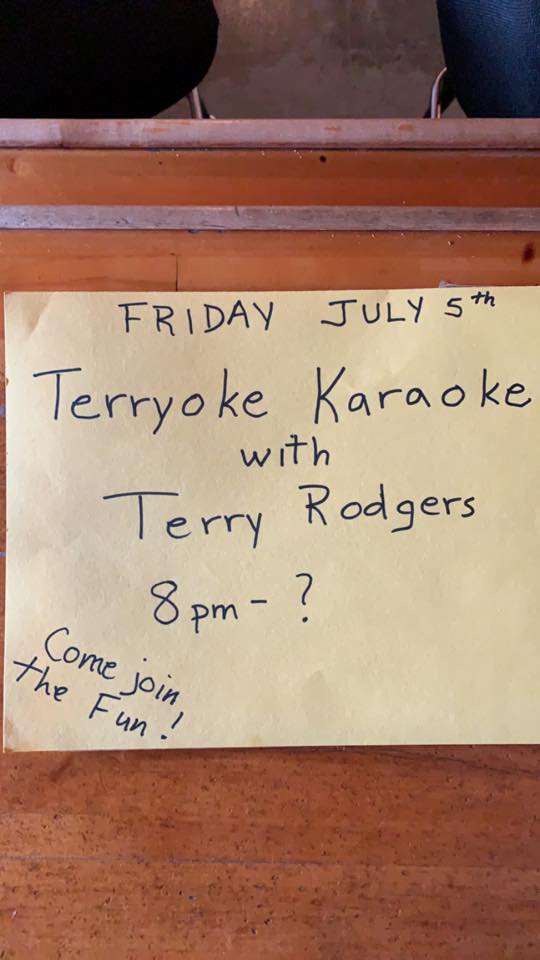 FRIDAY JULY 5th
Terryoke Karaoke
with
Terry Rodgers
8pm - ?
Come join
the Fun!